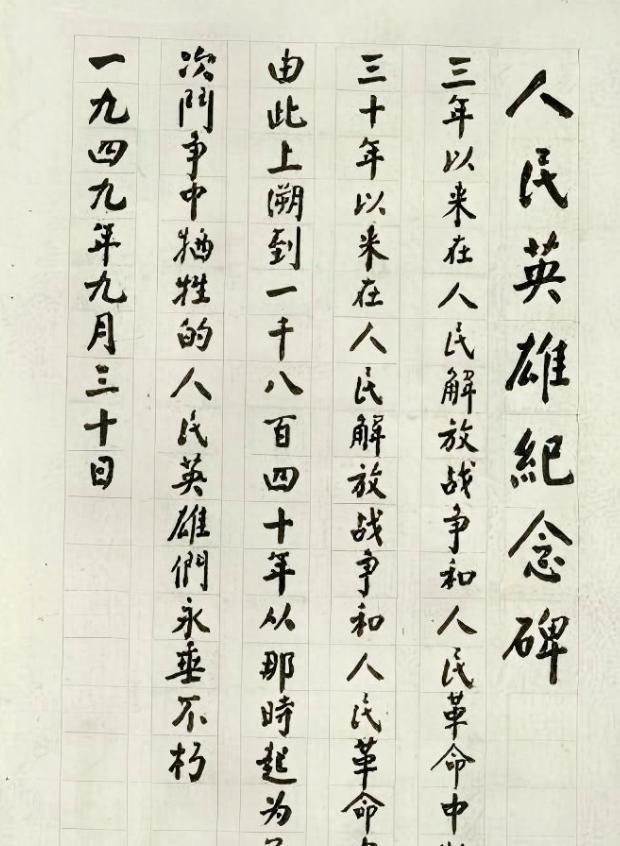 人民英雄紀念碑
三年以来在人民解放战争和人民革命中
三十年以来在人民解放战争和人民革命
由此上溯到一千八百四十年从那時起为
次鬥争中牺牲的人民英雄們永垂不朽
一九四九年九月三十日